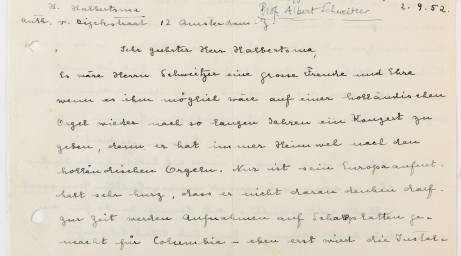 K. Halbertsma
Anth. v. Dijckstraat 12 Amsterdam-Z.
Prof. Albert Schweitzer
2.9.52.
Sehr geehrter Herr Halbertsma,
Es wäre Herrn Schweitzer eine grosse Freude und Ehre
wenn es ihm möglich wäre auf einer holländischen
Orgel wieder nach so langen Jahren ein Konzert zu
geben, denn er hat immer Heimweh nach den
holländischen Orgeln. Nur ist sein Europaaufent-
halt sehr kurz, dass er nicht daran denken darf.
zur Zeit werden Aufnahmen auf Schallplatten ge-
macht für Columbia – eben erst wird die Instal-